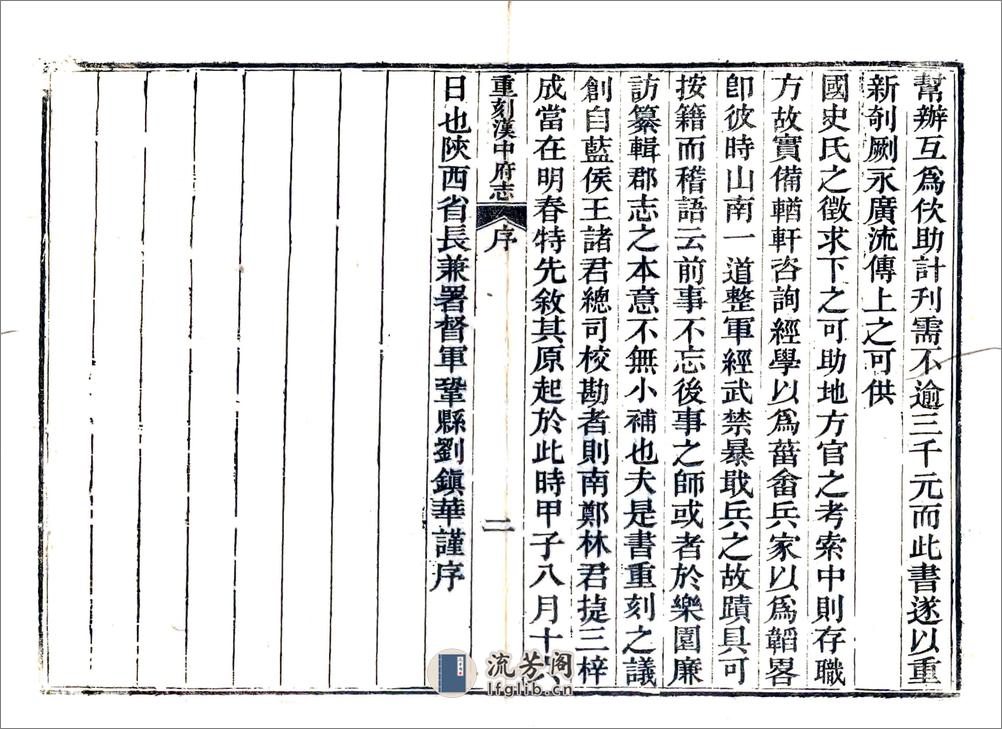 幫辦互爲佽助計刊需不逾三千元而此書遂以重
新剞劂永廣流傳上之可供
國史氏之徵求下之可助地方官之考索中則存職
方故實備輶軒咨詢經學以爲菑畬兵家以爲韜畧
卽彼時山南一道整軍經武禁暴戢兵之故蹟具可
按籍而稽語云前事不忘後事之師或者於樂園廉
訪纂輯郡志之本意不無小補也夫是書重刻之議
創自藍侯王諸君總司校勘者則南鄭林君㨗三梓
成當在明春特先敘其原起於此時甲子八月十
重刻漢中府志
序
二
日也陝西省長兼署督軍鞏縣劉鎭華謹序
流芳阁
lfglib.cn